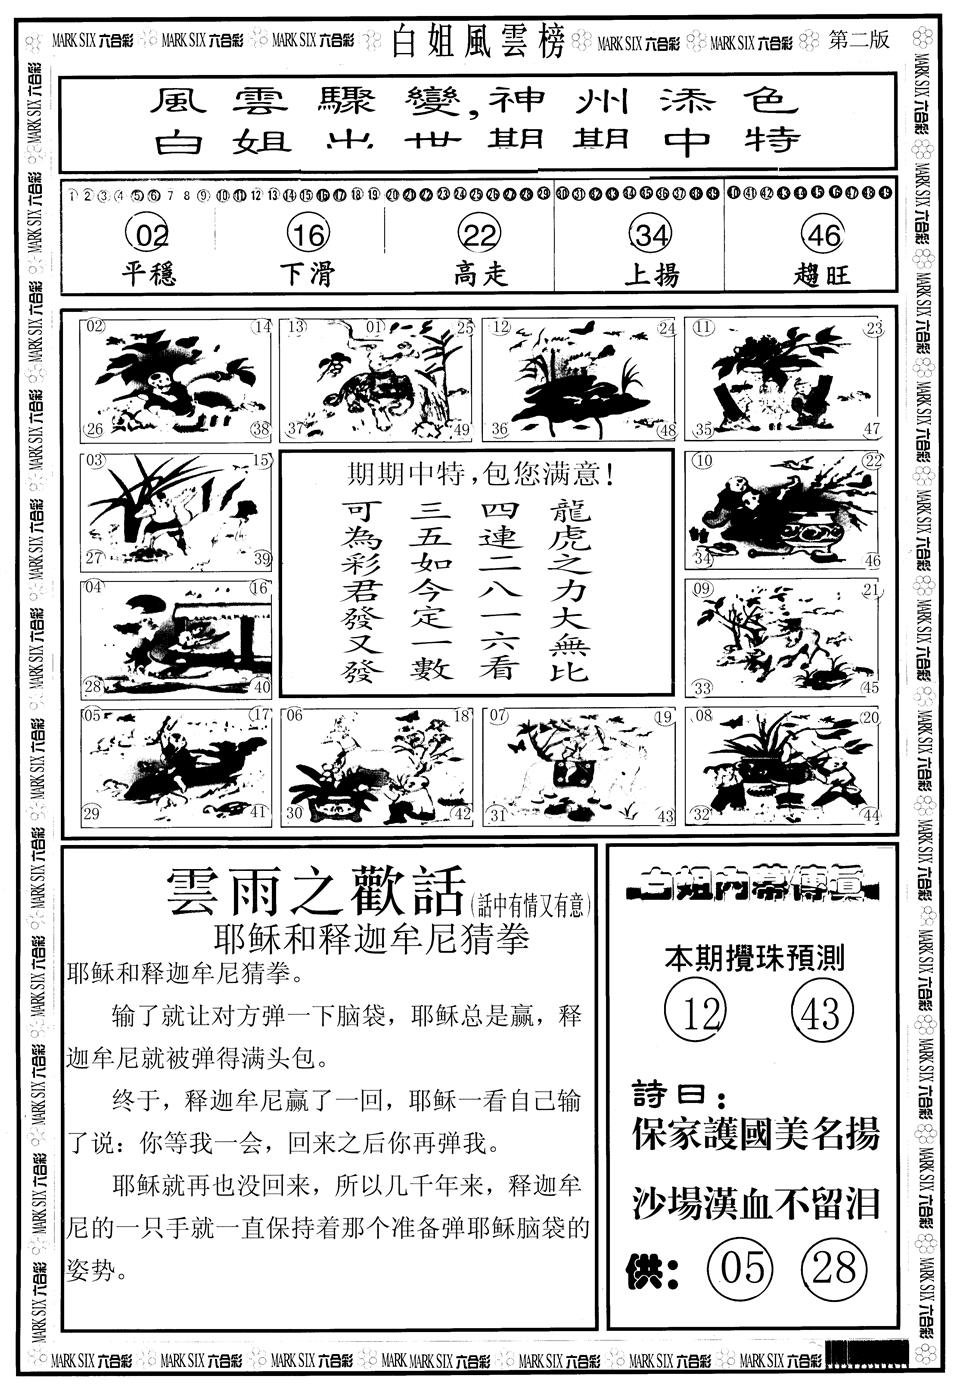 MARK SIX 六合彩 MARK SIX 六合彩 MARK SIX 六合彩 白姐風雲榜 MARK SIX 六合彩 MARK SIX 六合彩 第二版
風雲驟變,神州添色
白姐出世期期中特
1 2 3 4 5 6 7 8 9 10 11 12 13 14 15 16 17 18 19 20 21 22 23 24 25 26 27 28 29 30 31 32 33 34 35 36 37 38 39 40 41 42 43 44 45 46 47 48 49
02 16 22 34 46
平穩 下滑 高走 上揚 趨旺
02 14 13 01 25 12 24 11 23
26 38 37 49 36 48 35 47
03 15
27 39
04 16
28 40
期期中特,包您满意!
龍虎之力大無比
四連二八一六看
三五如今定一數
可為彩君發又發
10 22
34 46
09 21
33 45
05 17 06 18 07 19 08 20
29 41 30 42 31 43 32 44
雲雨之歡話(話中有情又有意)
耶稣和释迦牟尼猜拳
耶稣和释迦牟尼猜拳。
输了就让对方弹一下脑袋，耶稣总是赢，释
迦牟尼就被弹得满头包。
终于，释迦牟尼赢了一回，耶稣一看自己输
了说：你等我一会，回来之后你再弹我。
耶稣就再也没回来，所以几千年来，释迦牟
尼的一只手就一直保持着那个准备弹耶稣脑袋的
姿势。
白姐內幕傳真
本期攪珠預測
12 43
詩曰:
保家護國美名揚
沙場漢血不留泪
供: 05 28
MARK SIX 六合彩 MARK SIX 六合彩 MARK SIX 六合彩 MARK MARK SIX 六合彩 MARK SIX 六合彩 MARK SIX 六合彩 MARK SIX 六合彩